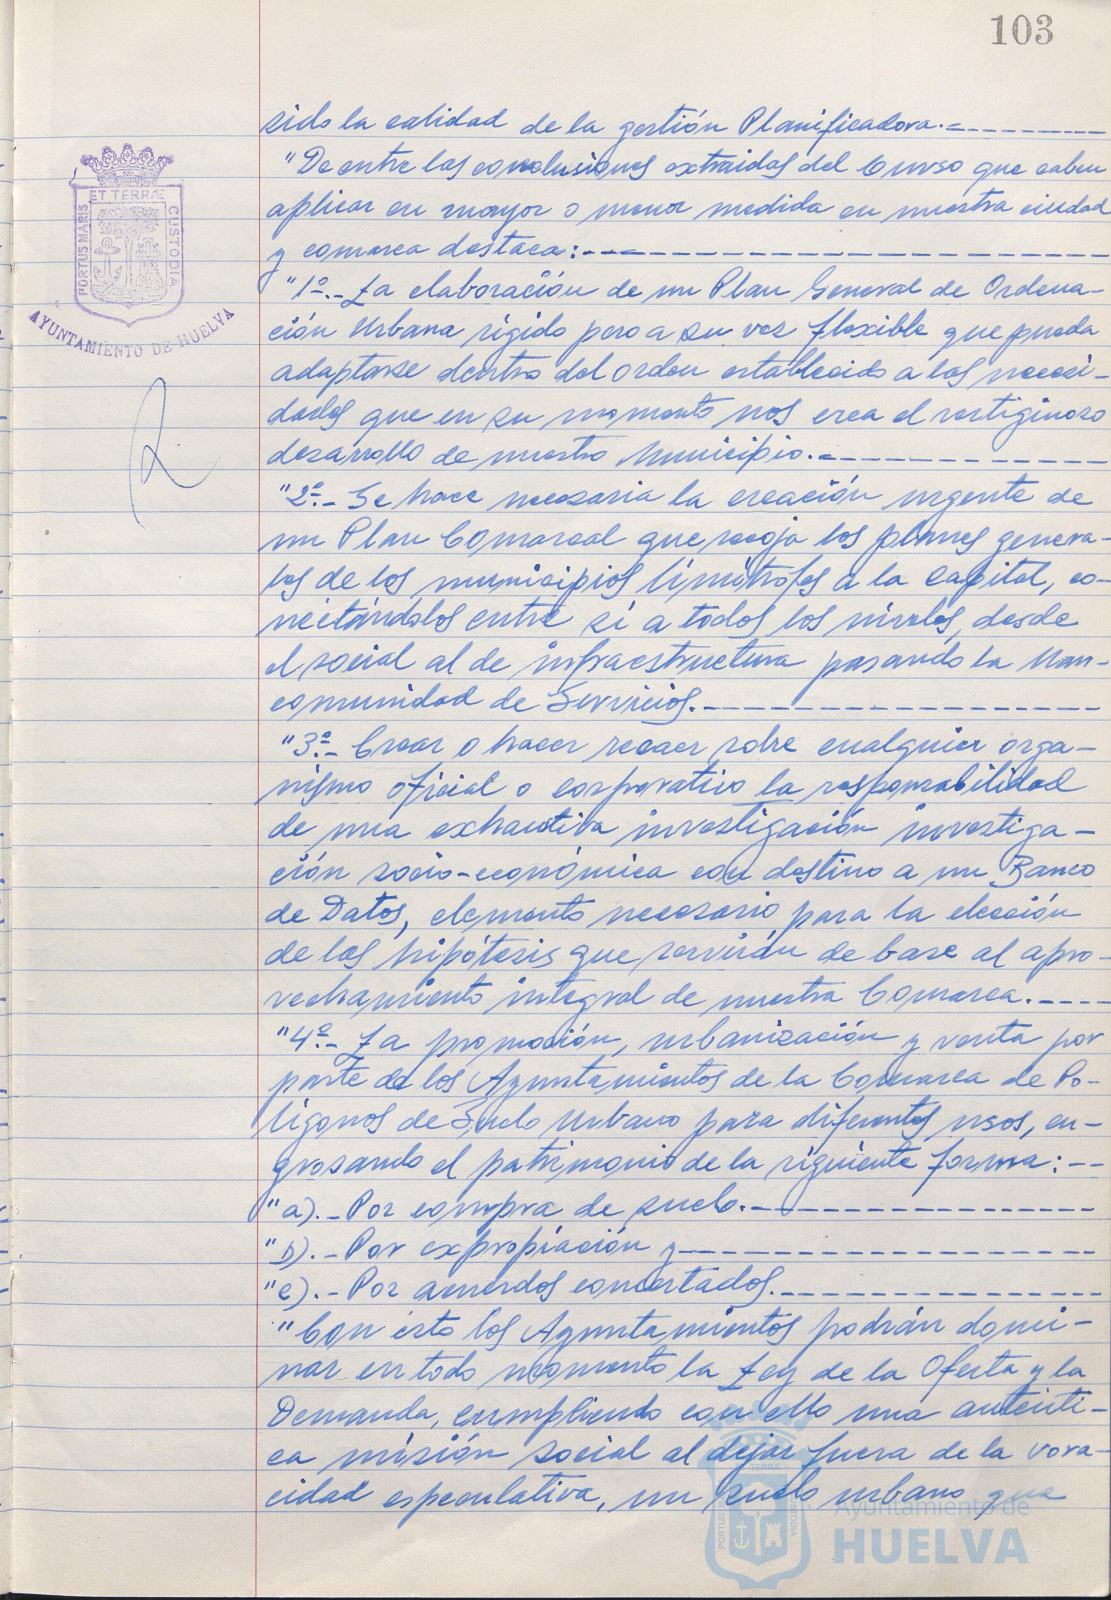 103
sido la calidad de la gestión Planificadora.-
"De entre las conclusiones extraidas del Curso que caben
aplicar en mayor o menor medida en nuestra ciudad
y comarca destaca:-
"1º.- La elaboración de un Plan General de Ordena-
ción Urbana rígido pero a su vez flexible que pueda
adaptarse dentro del orden establecido a las necesi-
dades que en su momento nos crea el vertiginoso
desarrollo de nuestro Municipio.-
"2º.- Se hace necesaria la creación urgente de
un Plan Comarcal que recoja los planes genera-
les de los municipios limítrofes a la capital, co-
nectándolos entre sí a todos los niveles, desde
el social al de infraestructura pasando la Man-
comunidad de Servicios.-
"3º.- Crear o hacer recaer sobre cualquier orga-
nismo oficial o corporativo la responsabilidad
de una exhaustiva investigación investiga-
ción socio-económica con destino a un Banco
de Datos, elemento necesario para la elección
de las hipótesis que servirán de base al apro-
vechamiento integral de nuestra Comarca.-
"4º.- La promoción, urbanización y venta por
parte de los Ayuntamientos de la Comarca de Po-
lígonos de Suelo Urbano para diferentes usos, en-
grosando el patrimonio de la siguiente forma:-
"a).- Por compra de suelo.-
"b).- Por expropiación y
"c).- Por acuerdos concertados.
"Con esto los Ayuntamientos podrán domi-
nar en todo momento la Ley de la Oferta y la
Demanda, cumpliendo con ello una autenti-
ca misión social al dejar fuera de la vora-
cidad especulativa, un suelo urbano que
PORTUS MARIS ET TERRÆ CUSTODIA
AYUNTAMIENTO DE HUELVA
Ayuntamiento de
HUELVA